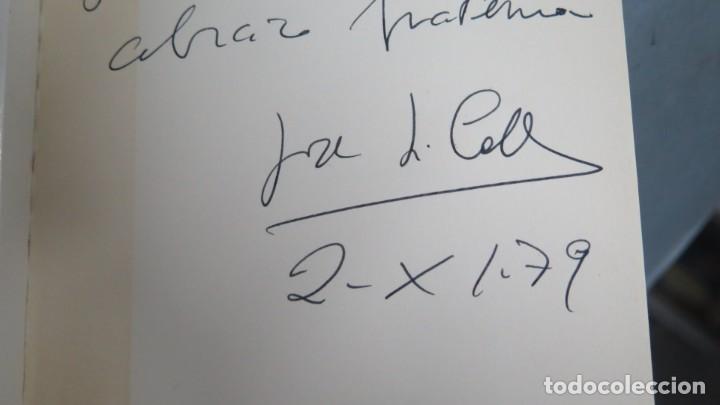 abrazo fraterno
José L. Coll
2-XI-79
todocoleccion